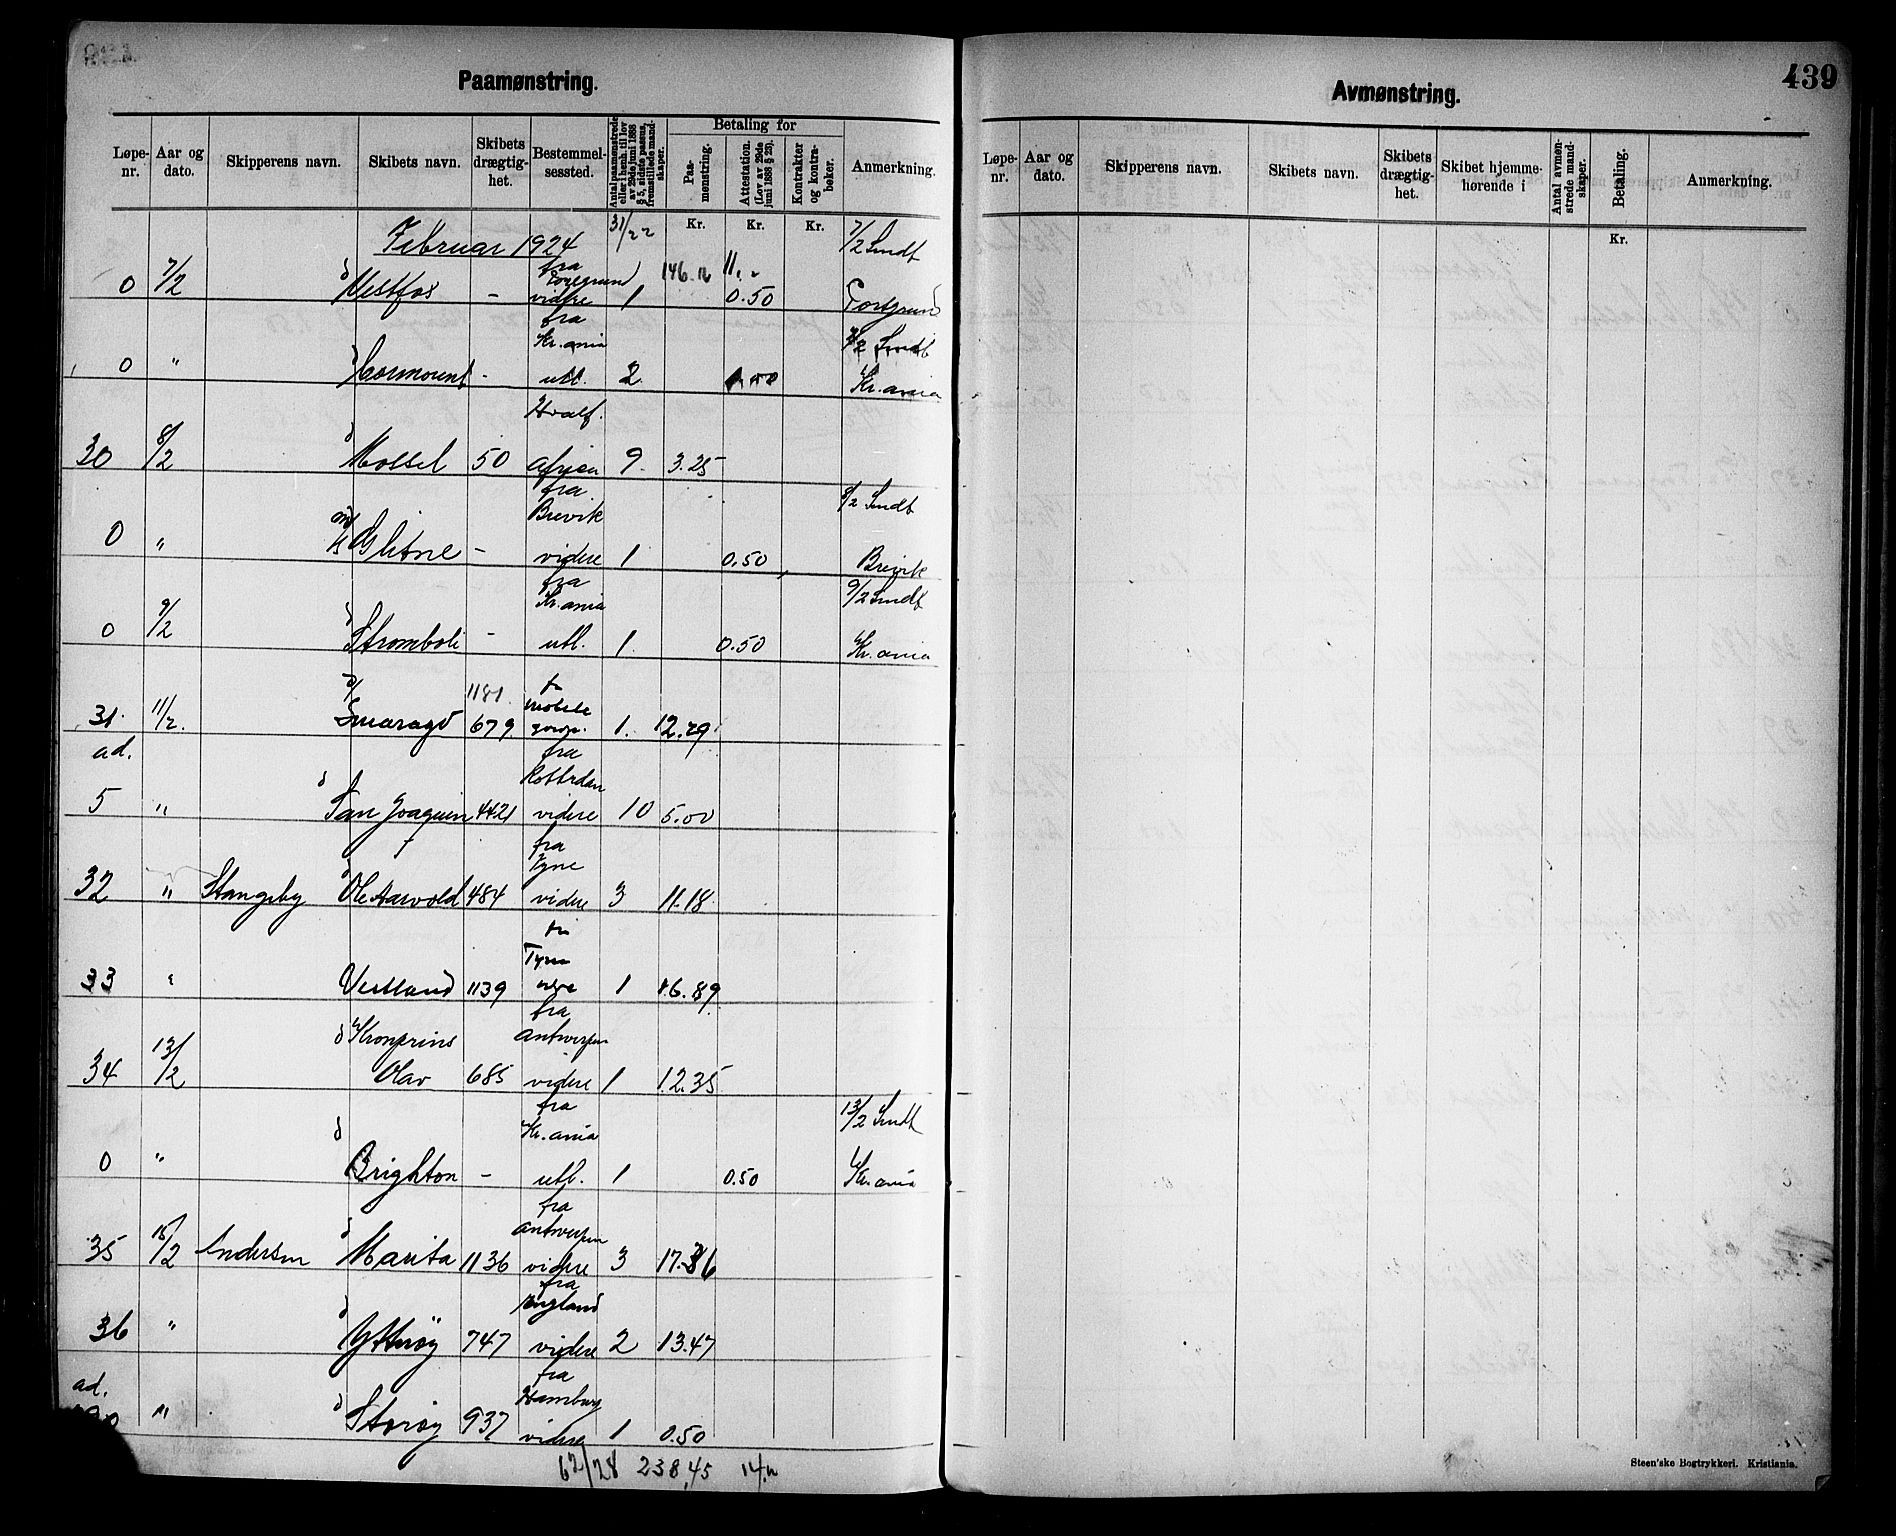 Paamønstring.
Løpe-nr.
Aar og dato.
Skipperens navn.
Skibets navn.
Skibets drægtig-het.
Bestemmel-sessted.
Antal paamønstrede eller i henh. til lov av 29de juni 1888 § 5, sidste passus, fremstillede mand-skaper.
Betaling for
Paa-mønstring.
Attestation. (Lov av 29de juni 1888 § 25).
Kontrakter og kontra-bøker.
Anmerkning.
Kr. Kr. Kr.
Februar 1924 31/22 7/2 Smdt
fra
146.12 11.-
0 7/2 d Vestfos - videre 1 0.50 Porsgrund
fra
Kr.ania 7/2 Smdt
0 " d Hormount - utl. 2 Kr.ania
Hvalf.
30 8/2 d Mossel 50 Africa 9. 3.25
fra
Brevik 8/2 Smdt
0 " m/k Glitne - videre 1 0.50 Brevik
fra
Kr.ania 9/2 Smdt
0 9/2 d Stromboli - utl. 1. 0.50 Kr.ania
1181
mobile
31. 11/2. d/ Smaragd 679 1. 12.29
ad. fra
Rotterdam
5 " d San Joaquin 4421 videre 10 5.00
fra
Tyne
32 " Stangeby d Ole Aarvold 484 videre 3 11.18
Tyne
33 " Vestland 1139 1 16.89
fra
13/2 d Kronprins Antwerpen
34 Olav 685 videre 1 12.35
fra
Kr.ania 13/2 Smdt
0 " d Brighton - utl. 1 0.50 Kr.ania
fra
Antwerpen
35 15/2 Andersen d Marita 1136 videre 3 17.36
fra
England
36 " d Ytterøy 747 videre 2 13.47
ad. fra
Hamburg
" d Storøy 937 videre 1 0.50
62/28 238.45 14.-
Avmønstring.
439
Løpe-nr.
Aar og dato.
Skipperens navn.
Skibets navn.
Skibets drægtig-het.
Skibet hjemme-hørende i
Antal avmøn-strede mand-skaper.
Betaling.
Anmerkning.
Kr.
Steen'ske Bogtrykkeri. Kristiania.